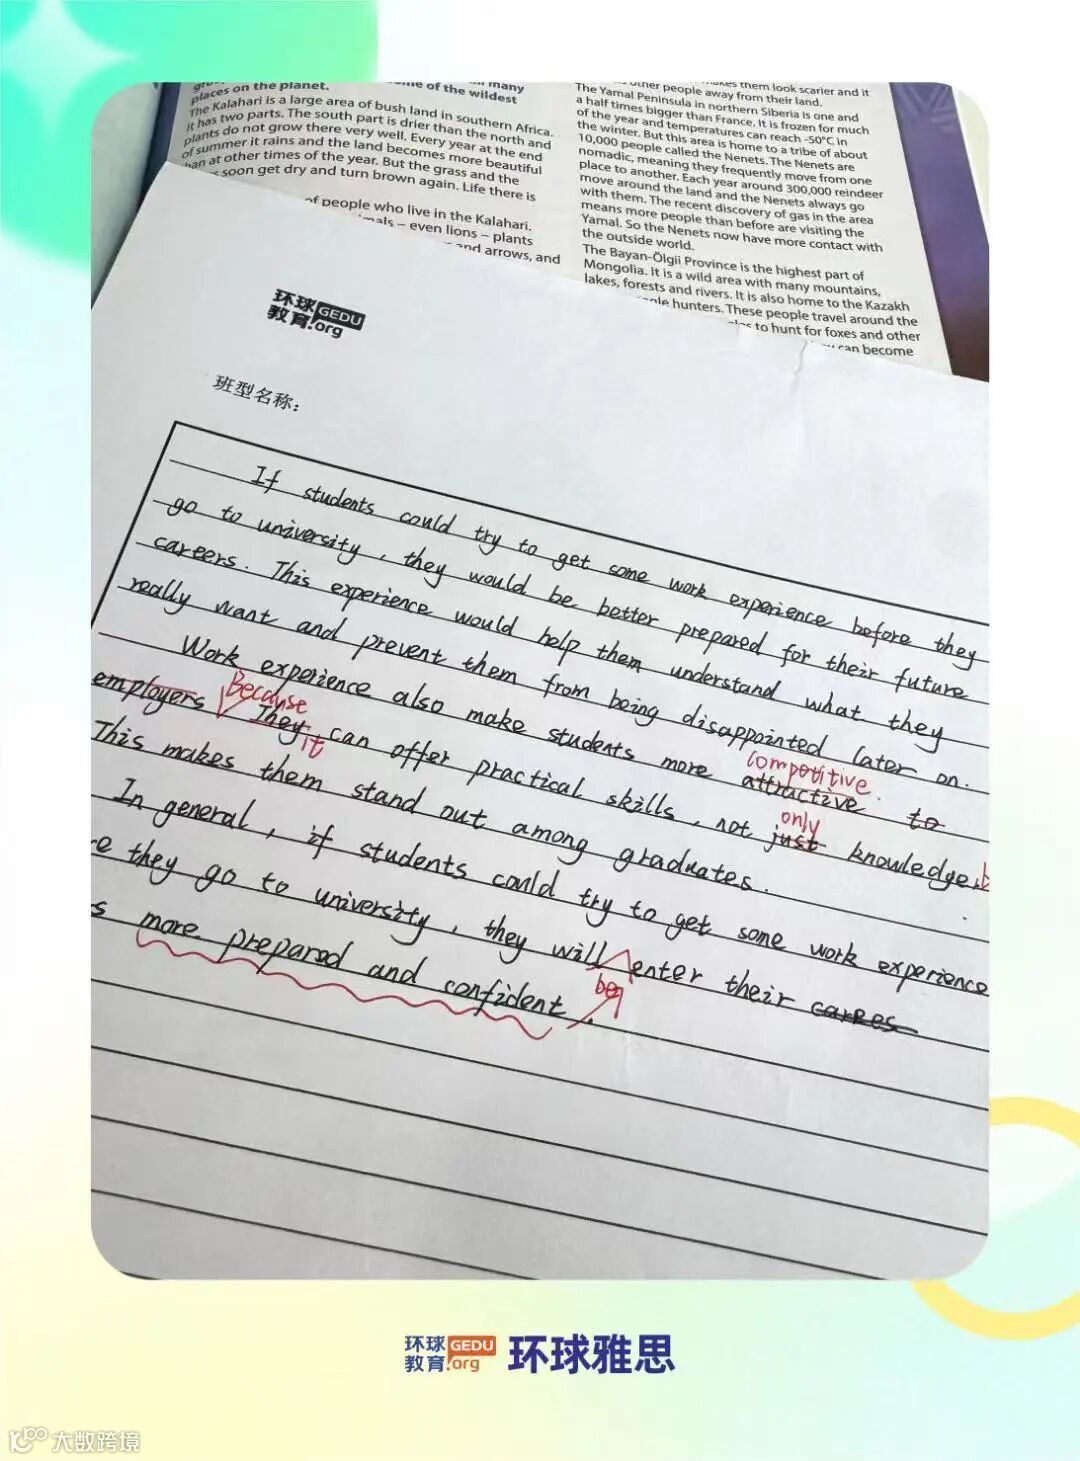 places on the planet.
of the wildest
many
The Kalahari is a large area of bush land in southern Africa.
It has two parts. The south part is drier than the north and
plants do not grow there very well. Every year at the end
of summer it rains and the land becomes more beautiful
at other times of the year. But the grass and the
soon get dry and turn brown again. Life there is
of people who live in the Kalahari.
– even lions – plants
and arrows, and
other people away from their land.
makes them look scarier and it
The Yamal Peninsula in northern Siberia is one and
a half times bigger than France. It is frozen for much
of the year and temperatures can reach -50°C in
the winter. But this area is home to a tribe of about
10,000 people called the Nenets. The Nenets are
nomadic, meaning they frequently move from one
place to another. Each year around 300,000 reindeer
move around the land and the Nenets always go
with them. The recent discovery of gas in the area
means more people than before are visiting the
Yamal. So the Nenets now have more contact with
the outside world.
The Bayan-Ölgii Province is the highest part of
Mongolia. It is a wild area with many mountains,
lakes, forests and rivers. It is also home to the Kazakh
hunters. These people travel around the
to hunt for foxes and other
can become
环球 GEDU
教育.org
班型名称：
If students could try to get some work experience before they
go to university, they would be better prepared for their future
careers. This experience would help them understand what they
really want and prevent them from being disappointed later on.
Work experience also make students more attractive to
competitive.
employers. They can offer practical skills, not just knowledge.
Because
it
only
This makes them stand out among graduates.
In general, if students could try to get some work experience
they go to university, they will enter their carees
be
more prepared and confident.
环球 GEDU 环球雅思
教育.org
大数跨境